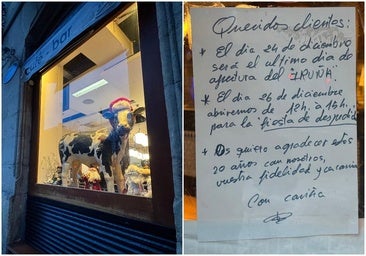 Café - bar
Queridos clientes:
* El dia 24 de diciembre
será el ultimo dia de
apertura del IRUÑA.
* El dia 26 de diciembre
abriremos de 12h. a 15h.
para la fiesta de despedida
* Os quiero agradecer estos
20 años con nosotros,
vuestra fidelidad y
Con cariño